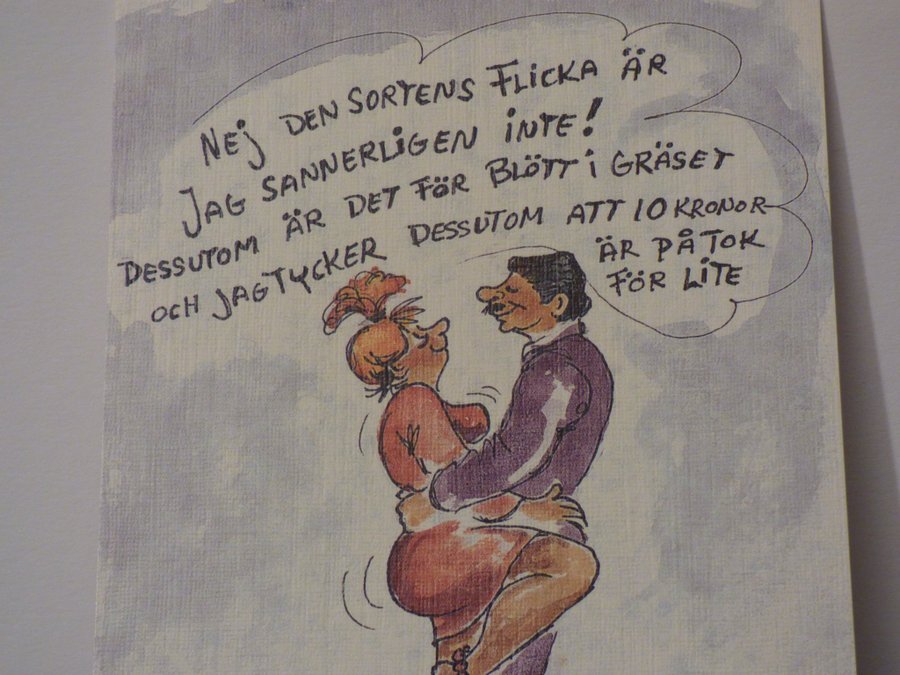 NEJ DEN SORTENS FLICKA ÄR
JAG SANNERLIGEN INTE!
DESSUTOM ÄR DET FÖR BLÖTT I GRÄSET
OCH JAG TYCKER DESSUTOM ATT 10 KRONOR
ÄR PÅ TOK
FÖR LITE